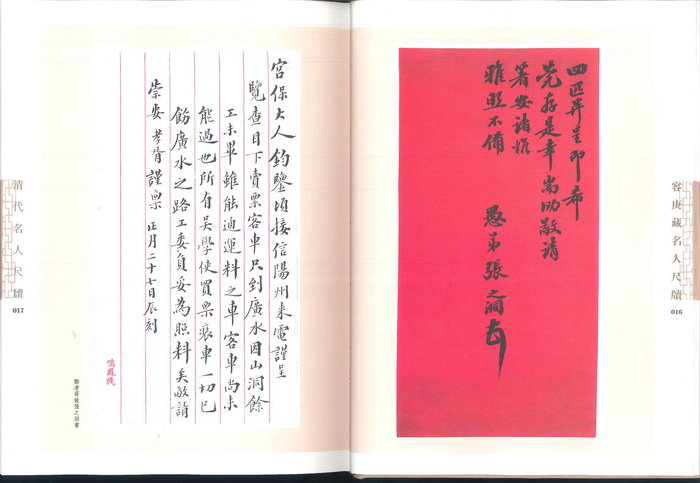 四匹并呈即希
莞存是幸耑泐敬請
著安諸惟
雅照不備
愚弟張之洞
容庚藏名人尺牘
016
宮保大人鈞鑒頃接信陽州来電謹呈
覽查目下賣票客車只到廣水因山洞餘
工未畢雖能通運料之車客車尚未
能過也所有吳學使買票乘車一切已
飭廣水之路工委員妥為照料矣敬請
崇安 孝胥謹稟 正月二十七日辰刻
鳴鳳牋
鄭孝胥致張之洞書
清代名人尺牘
017